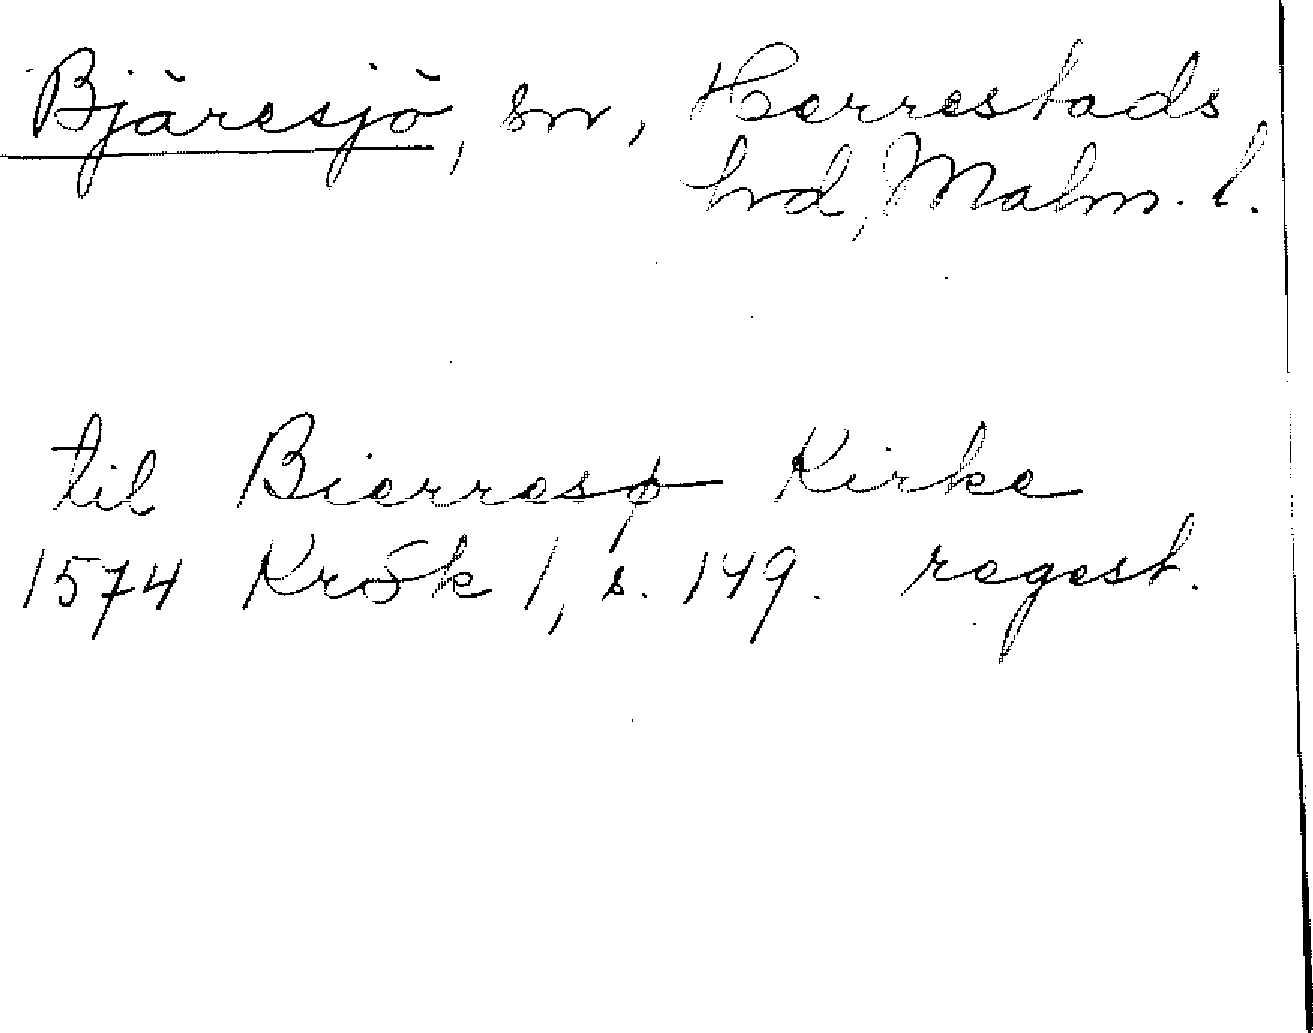 Bjäresjö, sn, Herrestads
hrd, Malm. l.
til Bierresø Kirke
1574 KrSk 1, s. 149. regest.